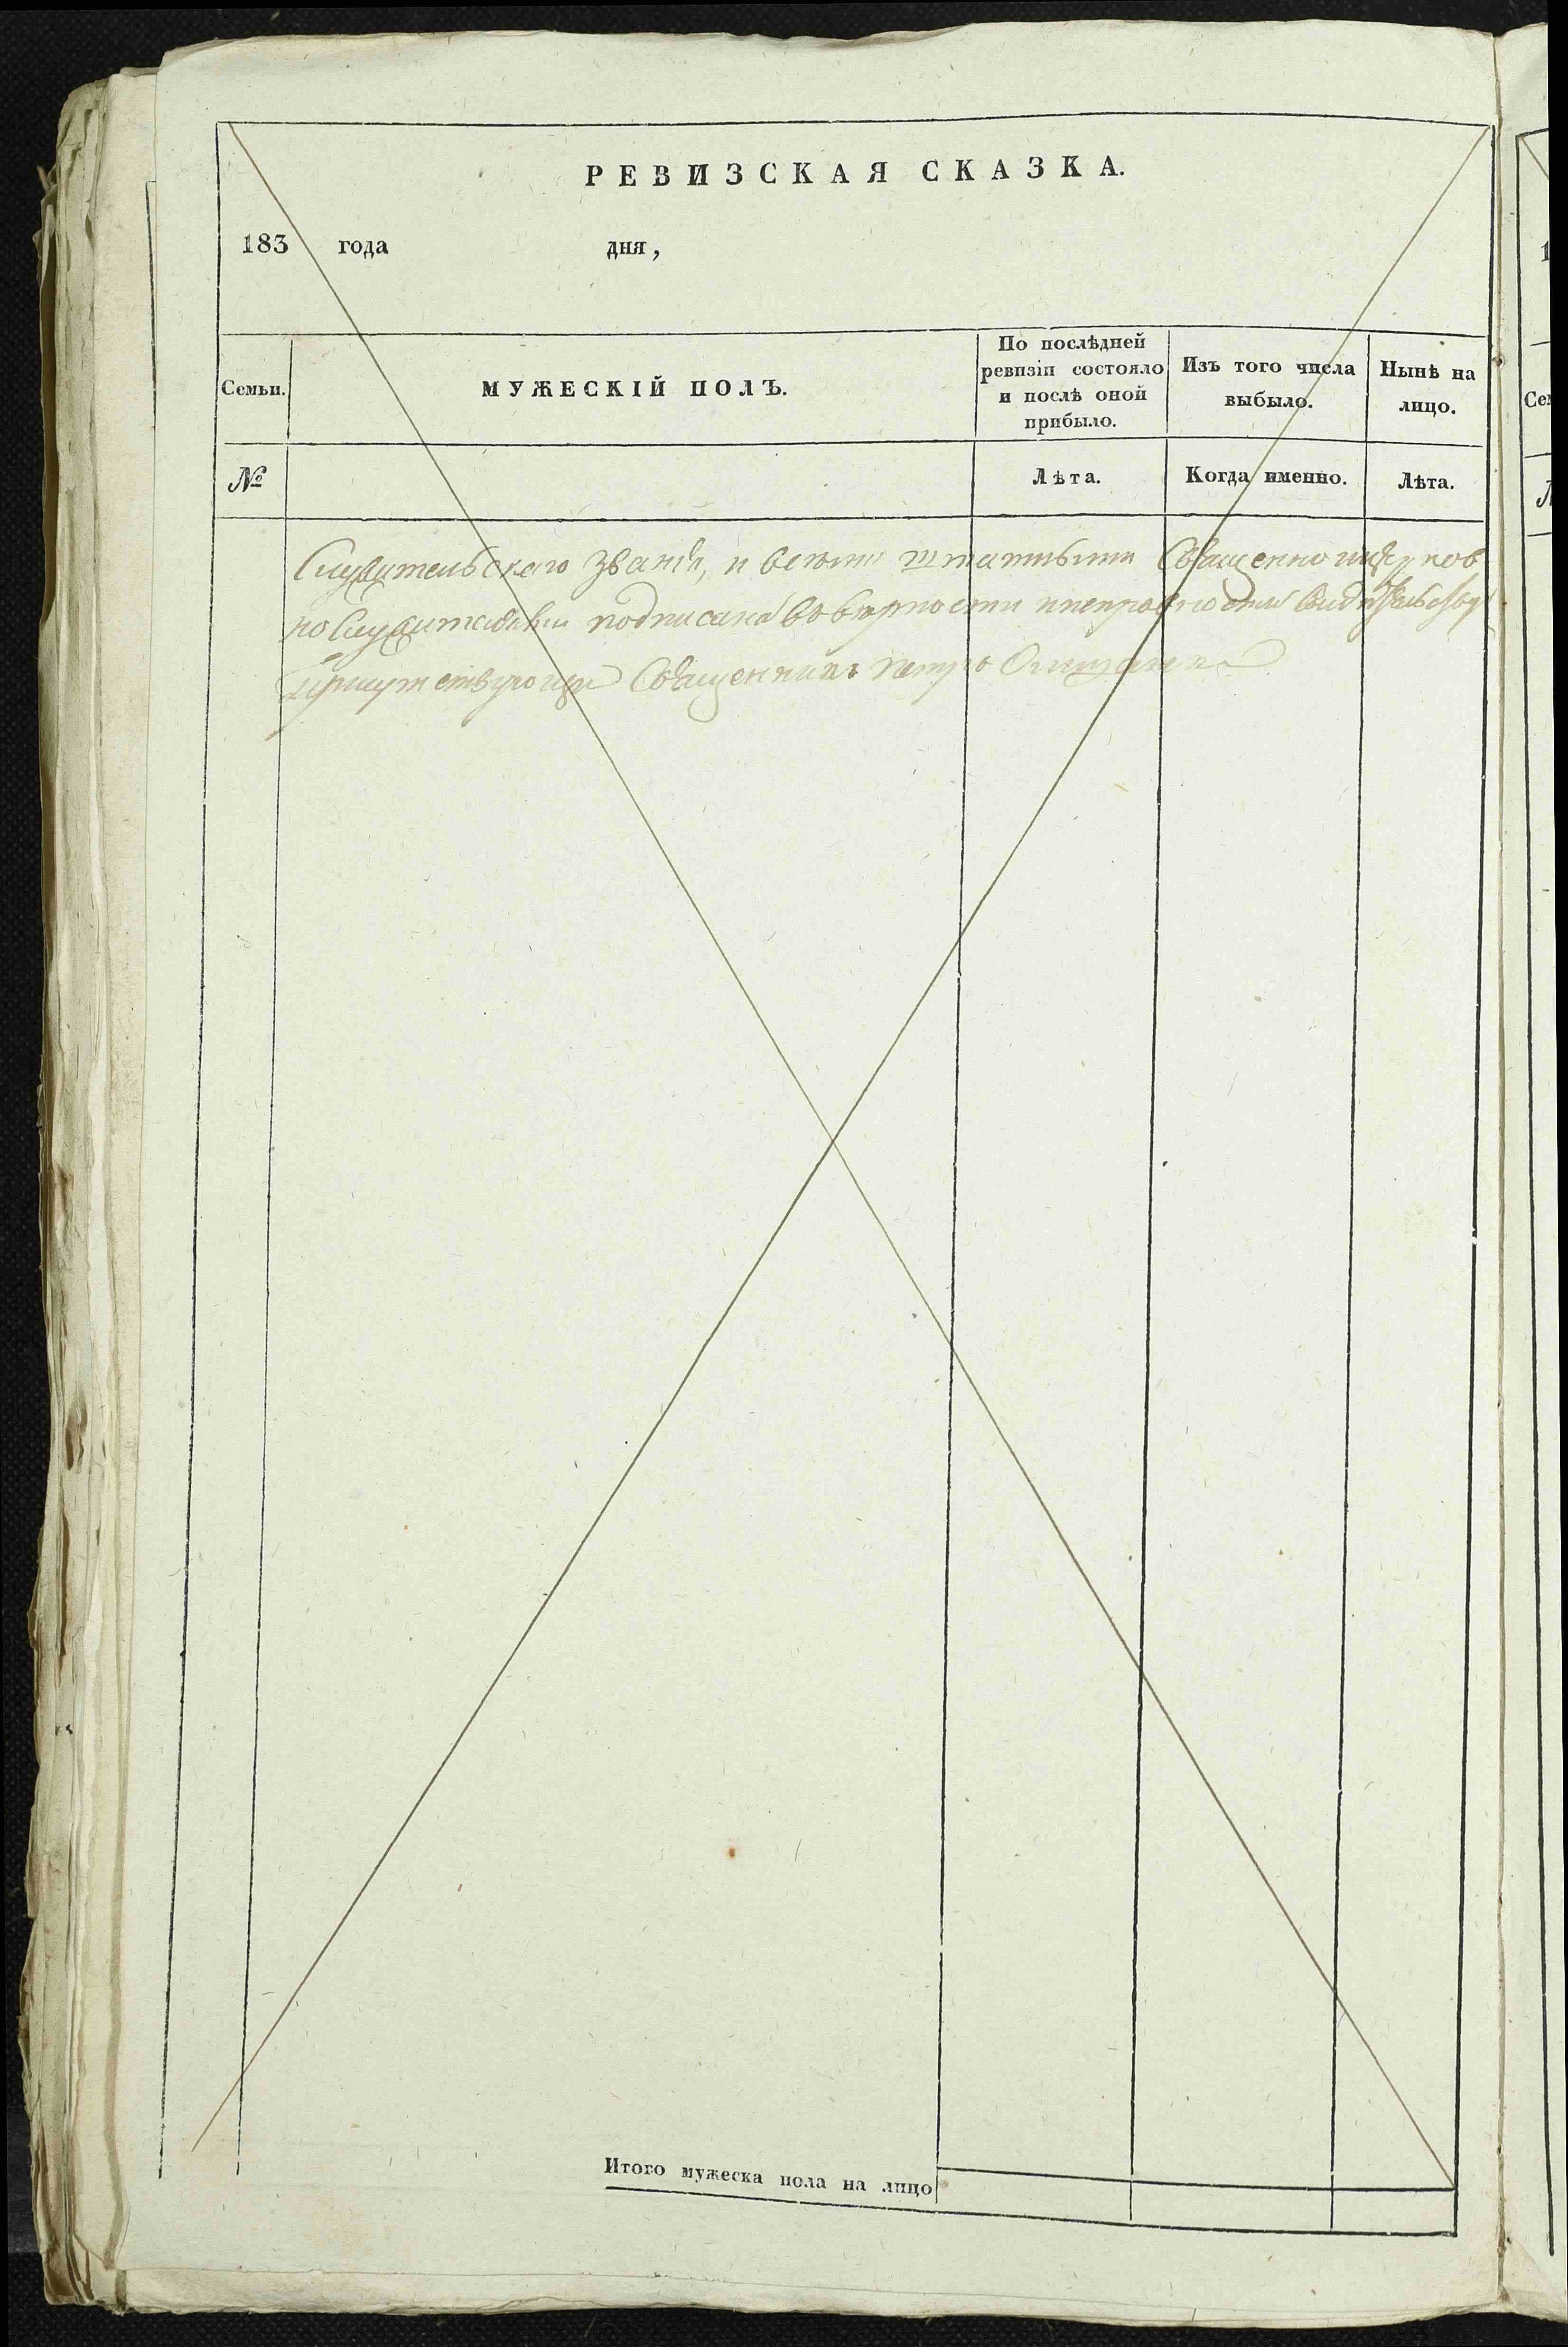 РЕВИЗСКАЯ СКАЗКА.
183 года дня,
Семьи.
МУЖЕСКІЙ ПОЛЪ.
По послѣдней
ревизіи состояло
и послѣ оной
прибыло.
Изъ того числа
выбыло.
Нынѣ на
лицо.
№
Лѣта.
Когда именно.
Лѣта.
Служительскаго званія, и всеми штатными Священно и церков
но служителями подписана въ верности и
Присутствующій Священникъ Петръ
Итого мужеска пола на лицо